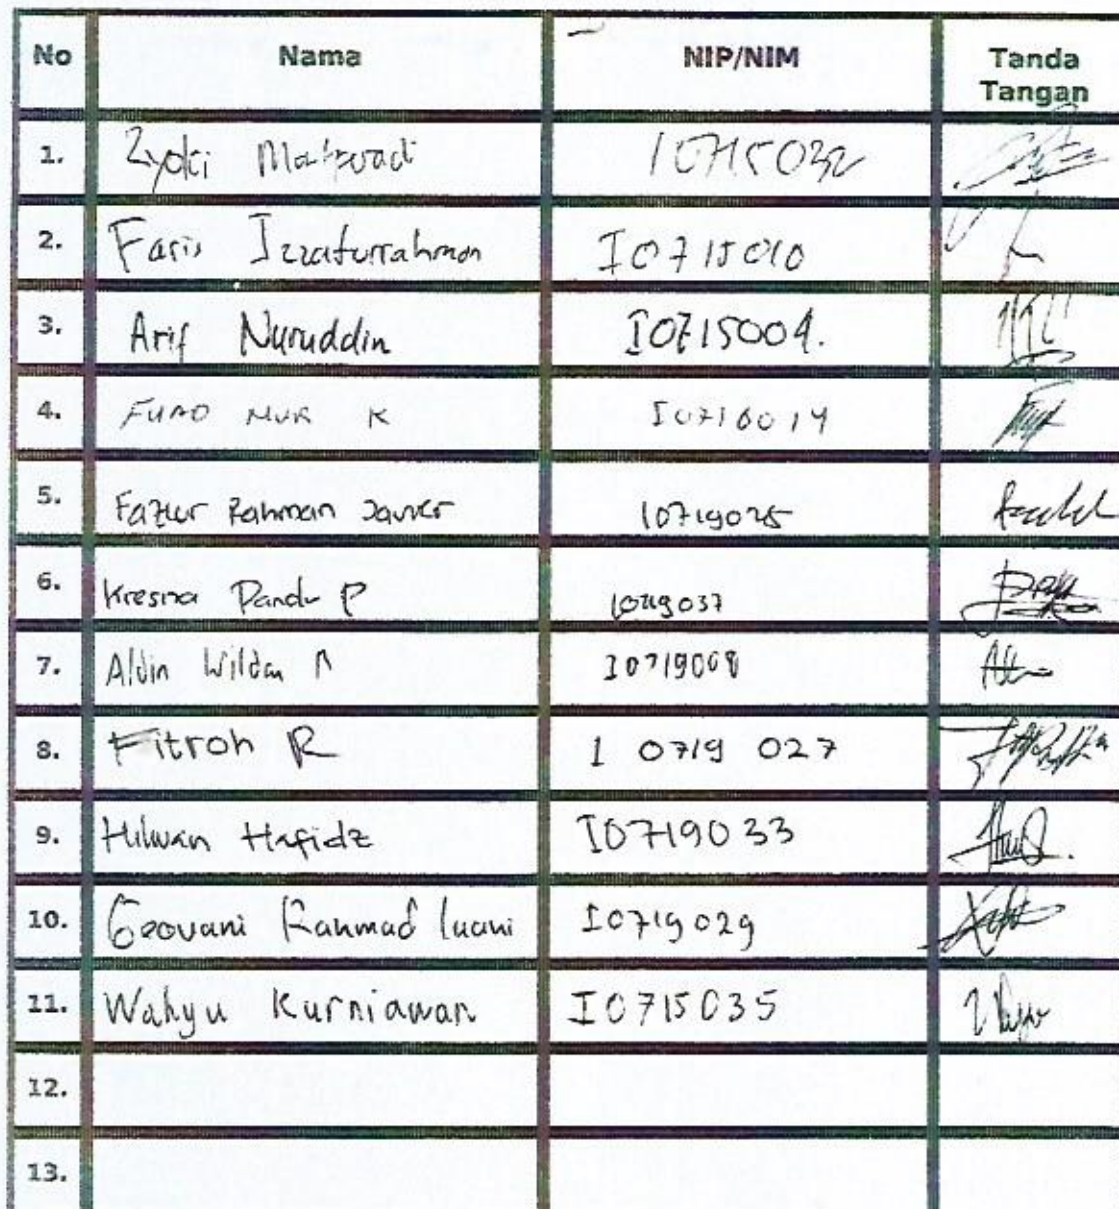 No Nama NIP/NIM Tanda Tangan
1. I0715032
2. Faris Izzaturrahman I0715010
3. Arif Nuruddin I0715004.
4. FUAD NUR K I0716014
5. Fazlur Rahman I0719025
6. Kresna Pandu P I0719037
7. Aldin Wildan I0719008
8. Fitroh R I 0719 027
9. Hilwan Hafidz I0719033
10. Geovani Rahmad I0719029
11. Wahyu Kurniawan I0715035
12.
13.